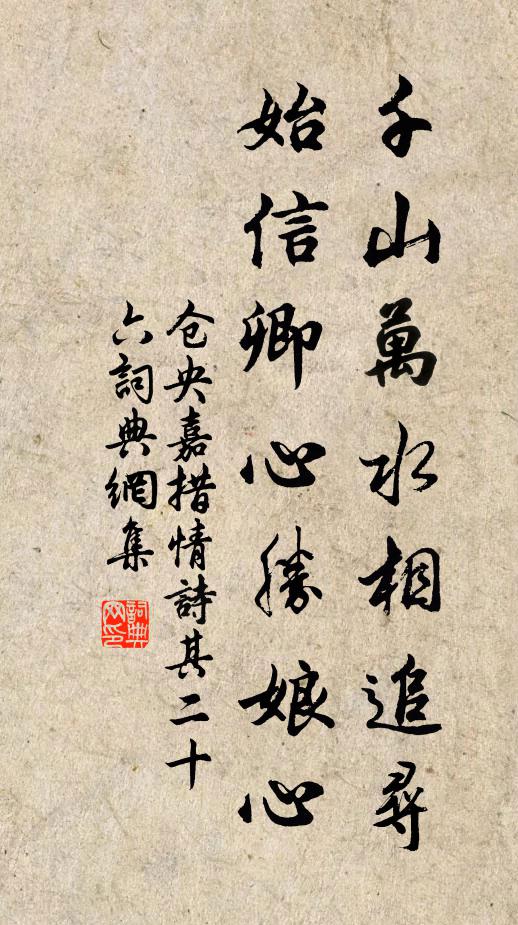 千山萬水相追尋
始信卿心勝娘心
仓央嘉措情詩其二十
六詞典網集
詞典
网印